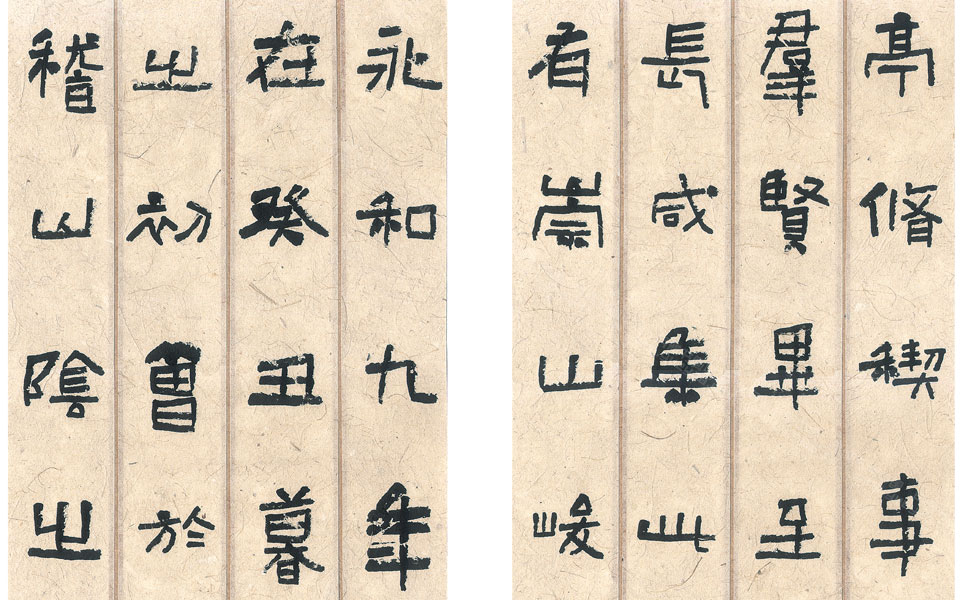 永和九年
在癸丑暮
之初會於
稽山陰之
亭脩稧事
羣賢畢至
長咸集此
有崇山峻